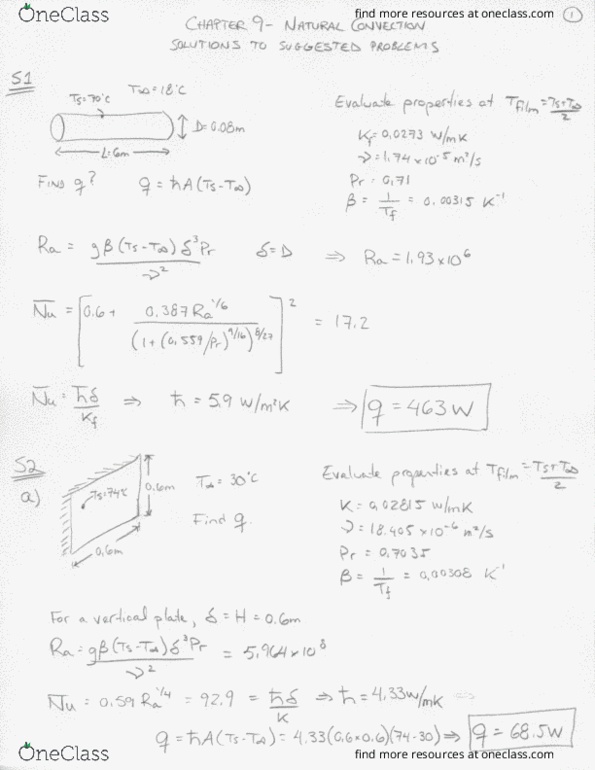 OneClass
find more resources at oneclass.com
1
CHAPTER 9 - NATURAL CONVECTION
SOLUTIONS TO SUGGESTED PROBLEMS
S1
Ts=70°C T∞=18°C
D=0.08m
L=6m
Evaluate properties at Tfilm = Ts+T∞/2
Kf=0.0273 W/mK
ν=1.74x10⁻⁵ m²/s
Pr=0.71
β = 1/Tf = 0.00315 K⁻¹
FIND q? q = h̄A(Ts-T∞)
Ra = gβ(Ts-T∞)δ³Pr/ν² δ=D ⇒ Ra=1.93x10⁶
N̄u = [0.6 + 0.387Ra^1/6/(1+(0.559/Pr)^9/16)^8/27]² = 17.2
N̄u = h̄δ/Kf ⇒ h̄ = 5.9 W/m²K ⇒ q = 463W
S2
a)
Ts=74°C
0.6m
0.6m
T∞ = 30°C
Find q.
Evaluate properties at Tfilm = Ts+T∞/2
K = 0.02815 W/mK
ν = 18.405x10⁻⁶ m²/s
Pr = 0.7035
β = 1/Tf = 0.00308 K⁻¹
For a vertical plate, δ = H = 0.6m
Ra = gβ(Ts-T∞)δ³Pr/ν² = 5.964x10⁸
N̄u = 0.59Ra^1/4 = 92.9 = h̄δ/K ⇒ h̄ = 4.33w/mK ⇒
q = h̄A(Ts-T∞) = 4.33(0.6x0.6)(74-30) ⇒ q = 68.5W
OneClass
find more resources at oneclass.com